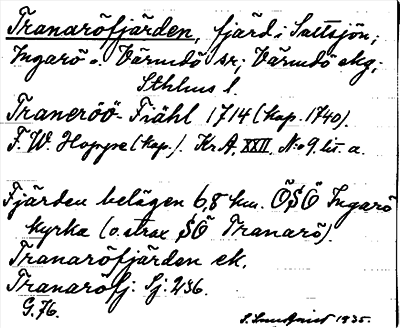 Tranaröfjärden, fjärd i Saltsjön;
Ingarö o. Värmdö sr; Värmdö skg;
Sthlms l.
Traneröö-Fiähl 1714 (kop. 1740).
F. W. Hoppe (kop.). KrA. XXII. No 9. lit. a.
Fjärden belägen 6,8 km. ÖSÖ Ingarö
kyrka (o. strax SÖ Tranarö).
Tranaröfjärden ek.
Tranaröfj. Sj. 236.
G. 76.
1935.